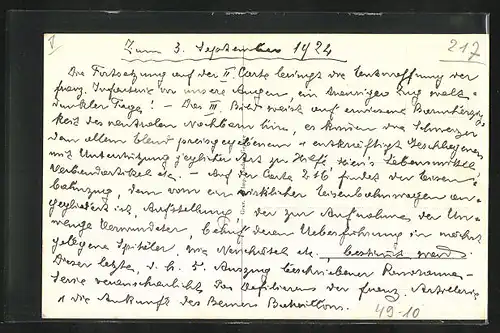 Zum 3. September 1924
217
Die Fortsetzung auf der II. Carte bringt die Entwaffnung der
franz. Infanterie vor unsere Augen, ein trauriger Zug
dunkler Tage! – Das III. Bild weist auf erwiesene Barmherzig-
keit des neutralen Nachbarn hin, es kündet die Schweizer
dem allem Elend preisgegebenen & entkräftigt Geschlagenen
mit Unterstützung jeglicher Art zu Hilfe, sei's Lebensmittel,
Verbandartikel etc. – Auf der Carte 216 findet der Eisen-
bahnzug, dem vorn ein wirklicher Eisenbahnwagen an-
gegliedert ist, Aufstellung, der zur Aufnahme der Un-
menge Verwundeter, behufs deren Ueberführung in nächst
gelegene Spitäler, wie Neuchâtel etc. bestimmt ward.
Dieser letzte, d. h. 5. Auszug beschriebener Panorama-
Serie veranschaulicht das Defilieren der franz. Artillerie
& die Ankunft des Berner Bataillons.
49-10